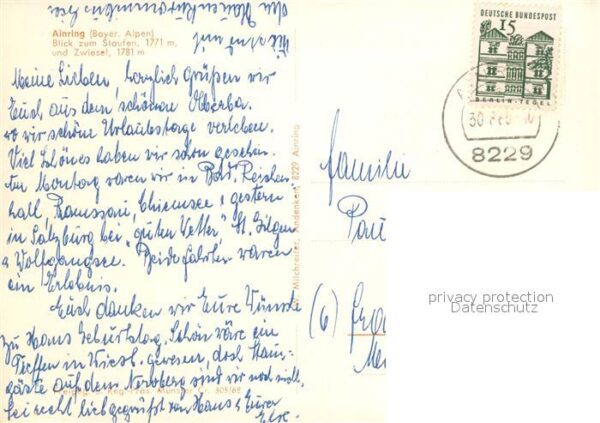 Ainring (Bayer. Alpen)
Blick zum Staufen, 1771 m,
und Zwiesel, 1781 m
Meine Lieben, herzlich grüßen wir
Euch aus dem schönen Oberba.
wo wir schöne Urlaubstage verleben.
Viel Schönes haben wir schon gesehen.
Am Montag waren wir in Bad Reichen-
hall, Ramsau, Chiemsee, gestern
in Salzburg bei "guten Wetter" St. Gilgen
& Wolfgangsee. Beide Fahrten waren
ein Erlebnis.
Euch danken wir Eure Wünsche
zu Hans Geburtstag. Schön wäre ein
Treffen in Wiesb. gewesen, doch
gäste auf dem Neroberg sind wir noch nicht.
Sei recht lieb gegrüßt von Hans & Eurer
Else.
Milchreiter, Andenken, 8229 Ainring
DEUTSCHE BUNDESPOST
15
BERLIN-TEGEL
30
8229
Familie
Pau
(6)
privacy protection
Datenschutz